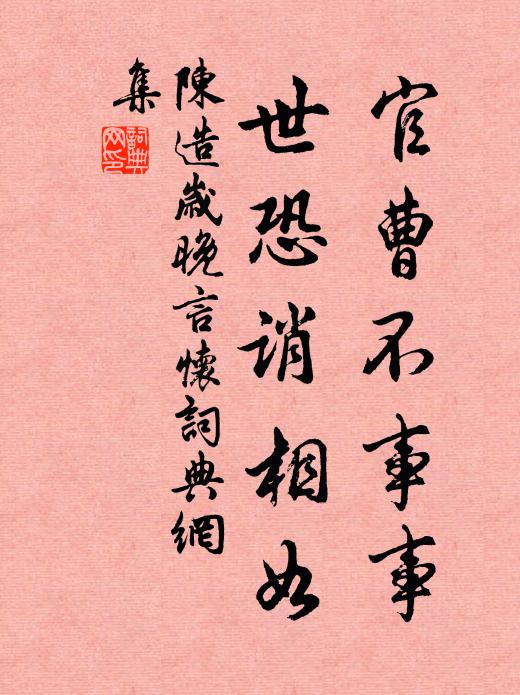 官曹不事事
世恐誚相如
陳造歲晚言懷詞典網
集
詞典網印